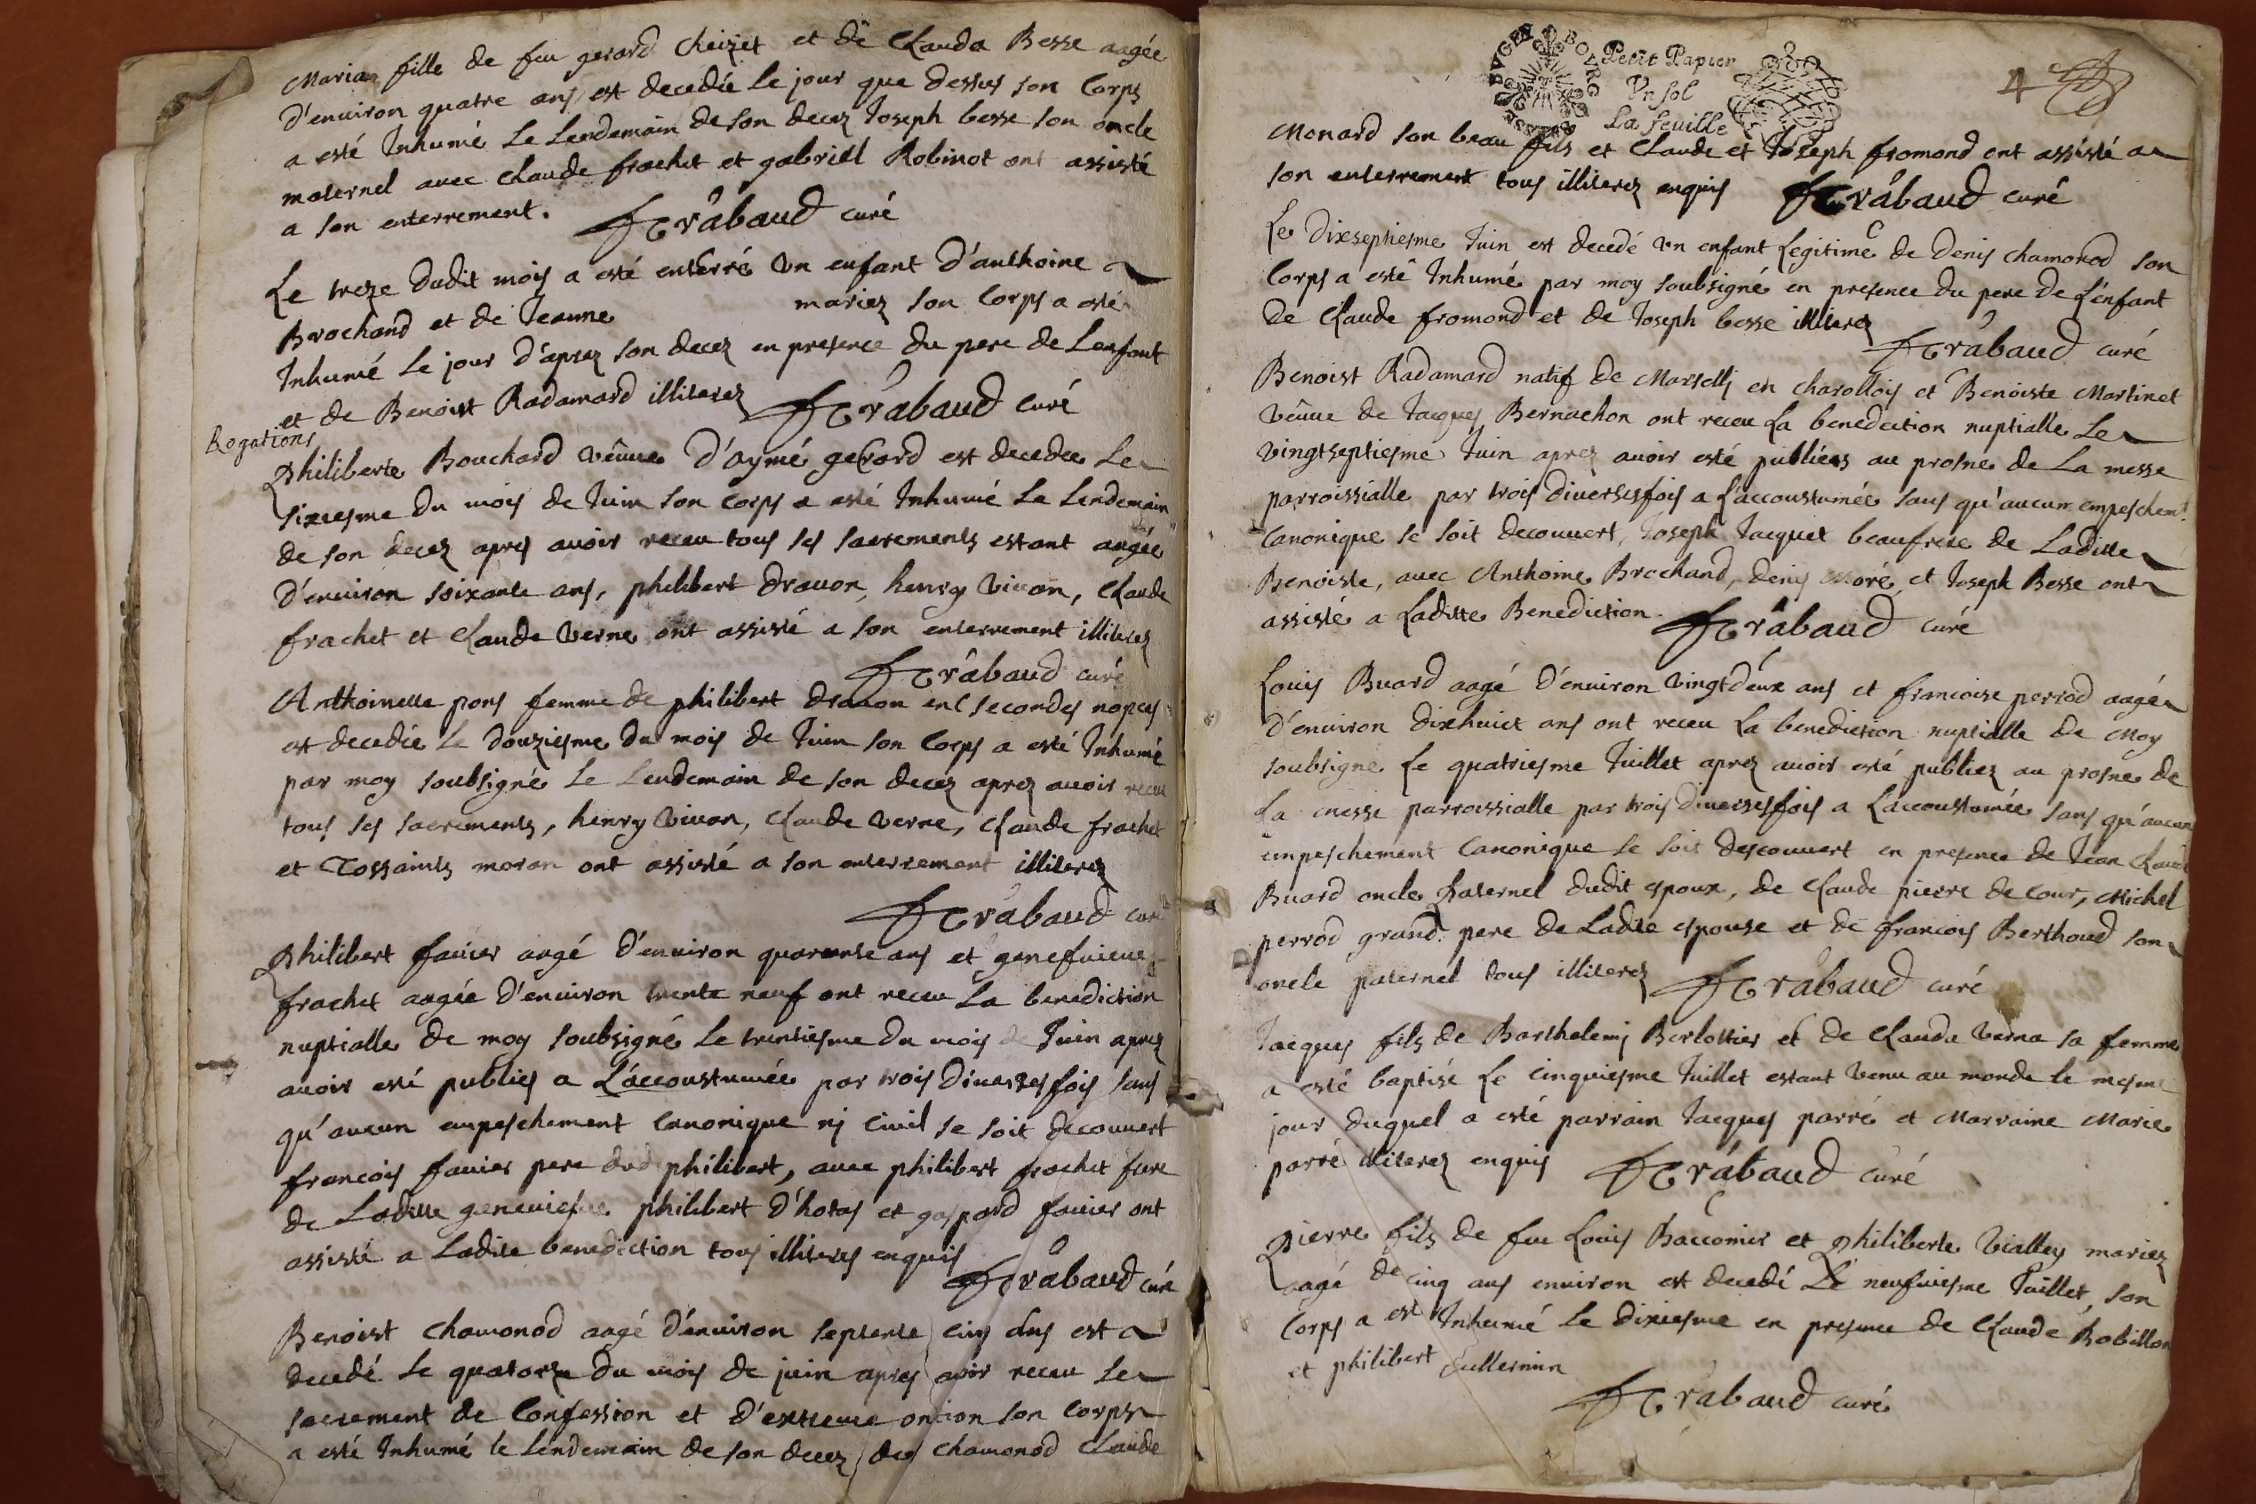 Maria fille de feu gerard cheizet et de Clauda Besse aagée
d'enuiron quatre ans est decedée le jour que dessus son Corps
a esté Inhumé Le Lendemain de son decez Joseph besse son oncle
maternel avec claude frachet et gabriell Robinot ont assisté
a son enterrement. frabaud curé
Le treze dudit mois a esté enterré vn enfant d'anthoine
Brochand et de Jeanne mariez son Corps a esté
Inhumé le jour d'aprez son decez en presence du pere de Lenfant
et de Benoist Radamard illiterez frabaud Curé
Rogations
Philiberte Bouchard veûue d'aymé gerard est decedee Le
sixiesme du mois de Juin son corps a esté Inhumé Le Lendemain
de son decez apres auoir receu tous ses sacrements estant aagée
d'enuiron soixante ans, philibert drauon, henry viuan, Claude
frachet et Claude Verne ont assisté a son enterrement illiterez
frabaud curé
Anthoinette pons femme de philibert drauon en secondes nopces
est decedée Le douziesme du mois de Juin son Corps a esté Inhumé
par moy soubsigné Le Lendemain de son decez aprez auoir receu
tous ses sacrements, henry Viuan, Claude verne, Claude frachet
et Tossaints moran ont assisté a son enterrement illiterez
frabaud curé
Philibert fauier aagé d'enuiron quarante ans et genefuieue
frachet aagée d'enuiron trente neuf ont receu La benediction
nuptialle de moy soubsigné Le trentiesme du mois de Juin aprez
auoir esté publies a L'accoustumée par trois diuerses fois sans
qu'aucun empeschement canonique nj Ciuil se soit decouuert
francois fauier pere dud philibert, auec philibert frachet frere
de Laditte geneuiefue philibert d'hotas et gaspard fauier ont
assisté a Ladite benediction tous illiteres enquis
frabaud curé
Benoist chamonod aagé d'enuiron septente cinq ans est
decedé Le quatorze du mois de juin apres avoir receu Le
sacrement de Confession et d'extreme onction son corps
a esté Inhumé le lendemain de son decez chamonod Claude
BVGEY BOVRG
Petit Papier
Vn sol
La feuille
4e
Monard son beau fils et Claude et Joseph fromond ont assisté a
son enterrement tous illiterez enquis frabaud curé
Le dixseptiesme Juin est decedé vn enfant Legitime de Denis chamonod son
Corps a esté Inhumé par moy soubsigné en presence du pere de L'enfant
de Claude fromond et de Joseph besse illiterez
frabaud curé
Benoist Radamard natif de Marselly en charollois et Benoiste Martinet
veûue de Jacques Bernachon ont receu La benediction nuptialle Le
vingtseptiesme Juin apres auoir esté publiees au prosne de La messe
parroissialle par trois diverses fois a L'accoustumée sans qu'aucun empeschemt
Canonique se soit decouuert, Joseph Jacquet beaufrere de Laditte
Benoiste, avec Anthoine Brochand, denis Moré et Joseph Besse ont
assisté a Laditte Benediction. frabaud curé
Louis Buard aagé d'enuiron vingtdeux ans et francoise perrod aagée
d'enuiron dixhuict ans ont receu La benediction nuptialle de Moy
soubsigné Le quatriesme Juillet aprez auoir esté publiez au prosne de
La messe parroissialle par trois diuerses fois a L'accoustumée sans qu'aucun
empeschement Canonique se soit descouuert en presence de Jean Claude
Buard oncle Paternel dudit espoux, de Claude pierre de Cour, Michel
perrod grand pere de Ladite espouse et de francois Berthoud son
oncle paternel tous illiterez frabaud curé
Jacques fils de Barthelemj Berlottier et de Clauda Verna sa femme
a esté baptisé Le cinquiesme Juillet estant Venu au monde le mesme
jour duquel a esté parrain Jacques parré et Marraine Marie
parré illiterez enquis frabaud curé
Pierre fils de feu Louis Baccomier et Philiberte Vialley mariez
aagé de cinq ans enuiron est decedé Le neufuiesme Juillet, son
Corps a est Inhumé le dixiesme en presence de Claude Robillon
et philibert Guillermin
frabaud curé